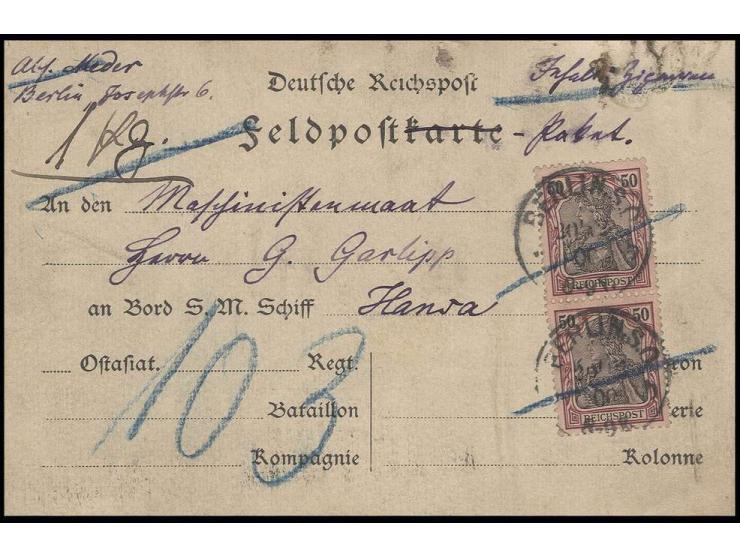 Alf. Meder
Berlin Josephstr 6.
Inhalt: Zigarren
1 Kg.
Deutsche Reichspost
Feldpostkarte - Paket.
An den Maschinistenmaat
Herrn G. Garlipp
an Bord S. M. Schiff Hansa
Ostasiat. Regt.
Bataillon
Kompagnie
Kolonne
103
50 50
REICHSPOST
50 50
REICHSPOST
BERLIN.S.O.
BERLIN.S.O.